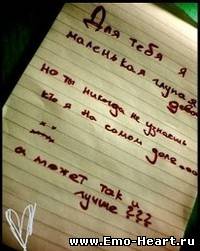 Для тебя я
маленькая глупая
девоч
Но ты никогда не узнаешь
кто я на самом деле...
а может так и
лучше ???
www.Emo-Heart.ru